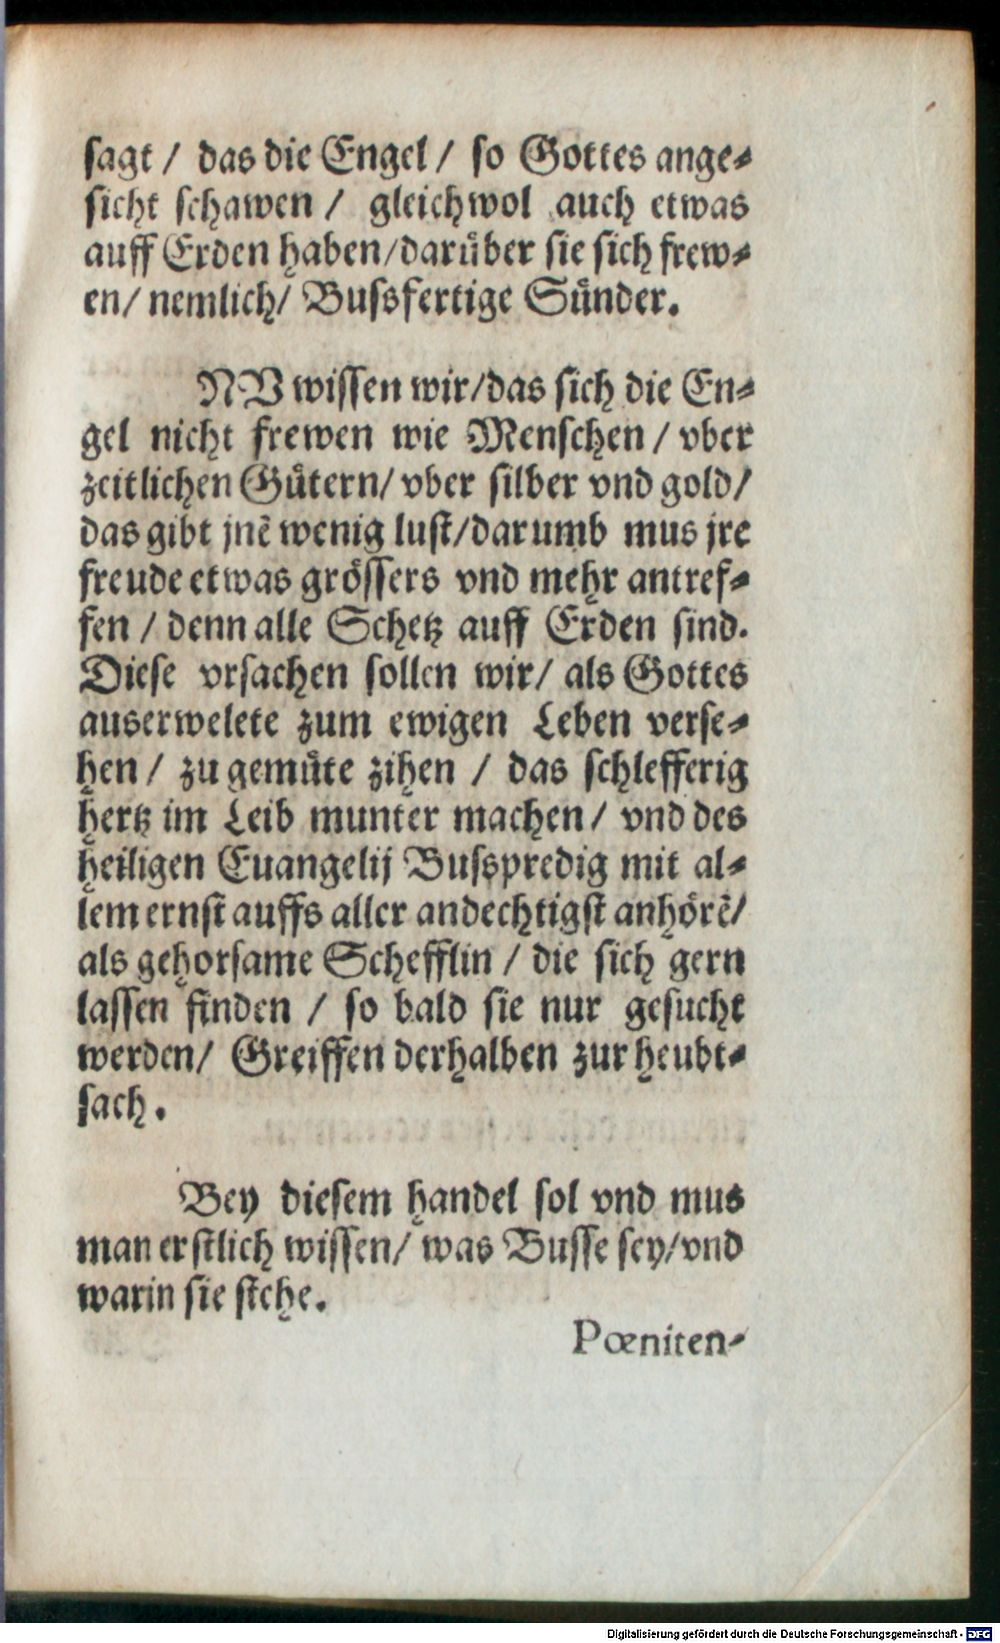 sagt / das die Engel / so Gottes ange⸗
sicht schawen / gleichwol auch etwas
auff Erden haben/darüber sie sich frew⸗
en/ nemlich/ Bussfertige Sünder.
NV wissen wir/das sich die En⸗
gel nicht frewen wie Menschen / vber
zeitlichen Gütern/ vber silber vnd gold/
das gibt jnẽ wenig lust/darumb mus jre
freude etwas grössers vnd mehr antref⸗
fen / denn alle Schetz auff Erden sind.
Diese vrsachen sollen wir/ als Gottes
auserwelete zum ewigen Leben verse⸗
hen / zu gemüte zihen / das schlefferig
hertz im Leib munter machen / vnd des
heiligen Euangelij Busspredig mit al⸗
lem ernst auffs aller andechtigst anhörẽ/
als gehorsame Schefflin / die sich gern
lassen finden / so bald sie nur gesucht
werden/ Greiffen derhalben zur heubt⸗
sach.
Bey diesem handel sol vnd mus
man erstlich wissen/ was Busse sey/vnd
warin sie stehe.
Pœniten-
Digitalisierung gefördert durch die Deutsche Forschungsgemeinschaft - DFG